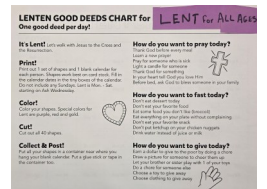 LENTEN GOOD DEEDS CHART for LENT for ALL AGES
One good deed per day!
It's Lent! Let's walk with Jesus to the Cross and
the Resurrection.
Print!
Print out 1 set of shapes and 1 blank calendar for
each person. Shapes work best on card stock. Fill in
the calendar dates in the tiny boxes of the calendar.
Do not include any Sundays. Lent is Mon. - Sat.
starting on Ash Wednesday.
Color!
Color your shapes. Special colors for
Lent are purple, red and gold.
Cut!
Cut out all 40 shapes.
Collect & Post!
Put all your shapes in a container near where you
hang your blank calendar. Put a glue stick or tape in
the container too.
How do you want to pray today?
Thank God before every meal
Learn a new prayer
Pray for someone who is sick
Light a candle for someone
Thank God for something
In your heart tell God you love Him
Before bed, ask God to bless someone in your family
How do you want to fast today?
Don't eat dessert today
Don't eat your favorite food
Eat some food you don't like (broccoli)
Eat everything on your plate without complaining
Don't eat your favorite snack
Don't put ketchup on your chicken nuggets
Drink water instead of juice or milk
How do you want to give today?
Give a dollar to the poor by doing a chore
Draw a picture for someone to cheer them up
Let your brother or sister play with 1 of your toys
Do a chore for someone else
Choose a toy to give away
Choose clothing to give away